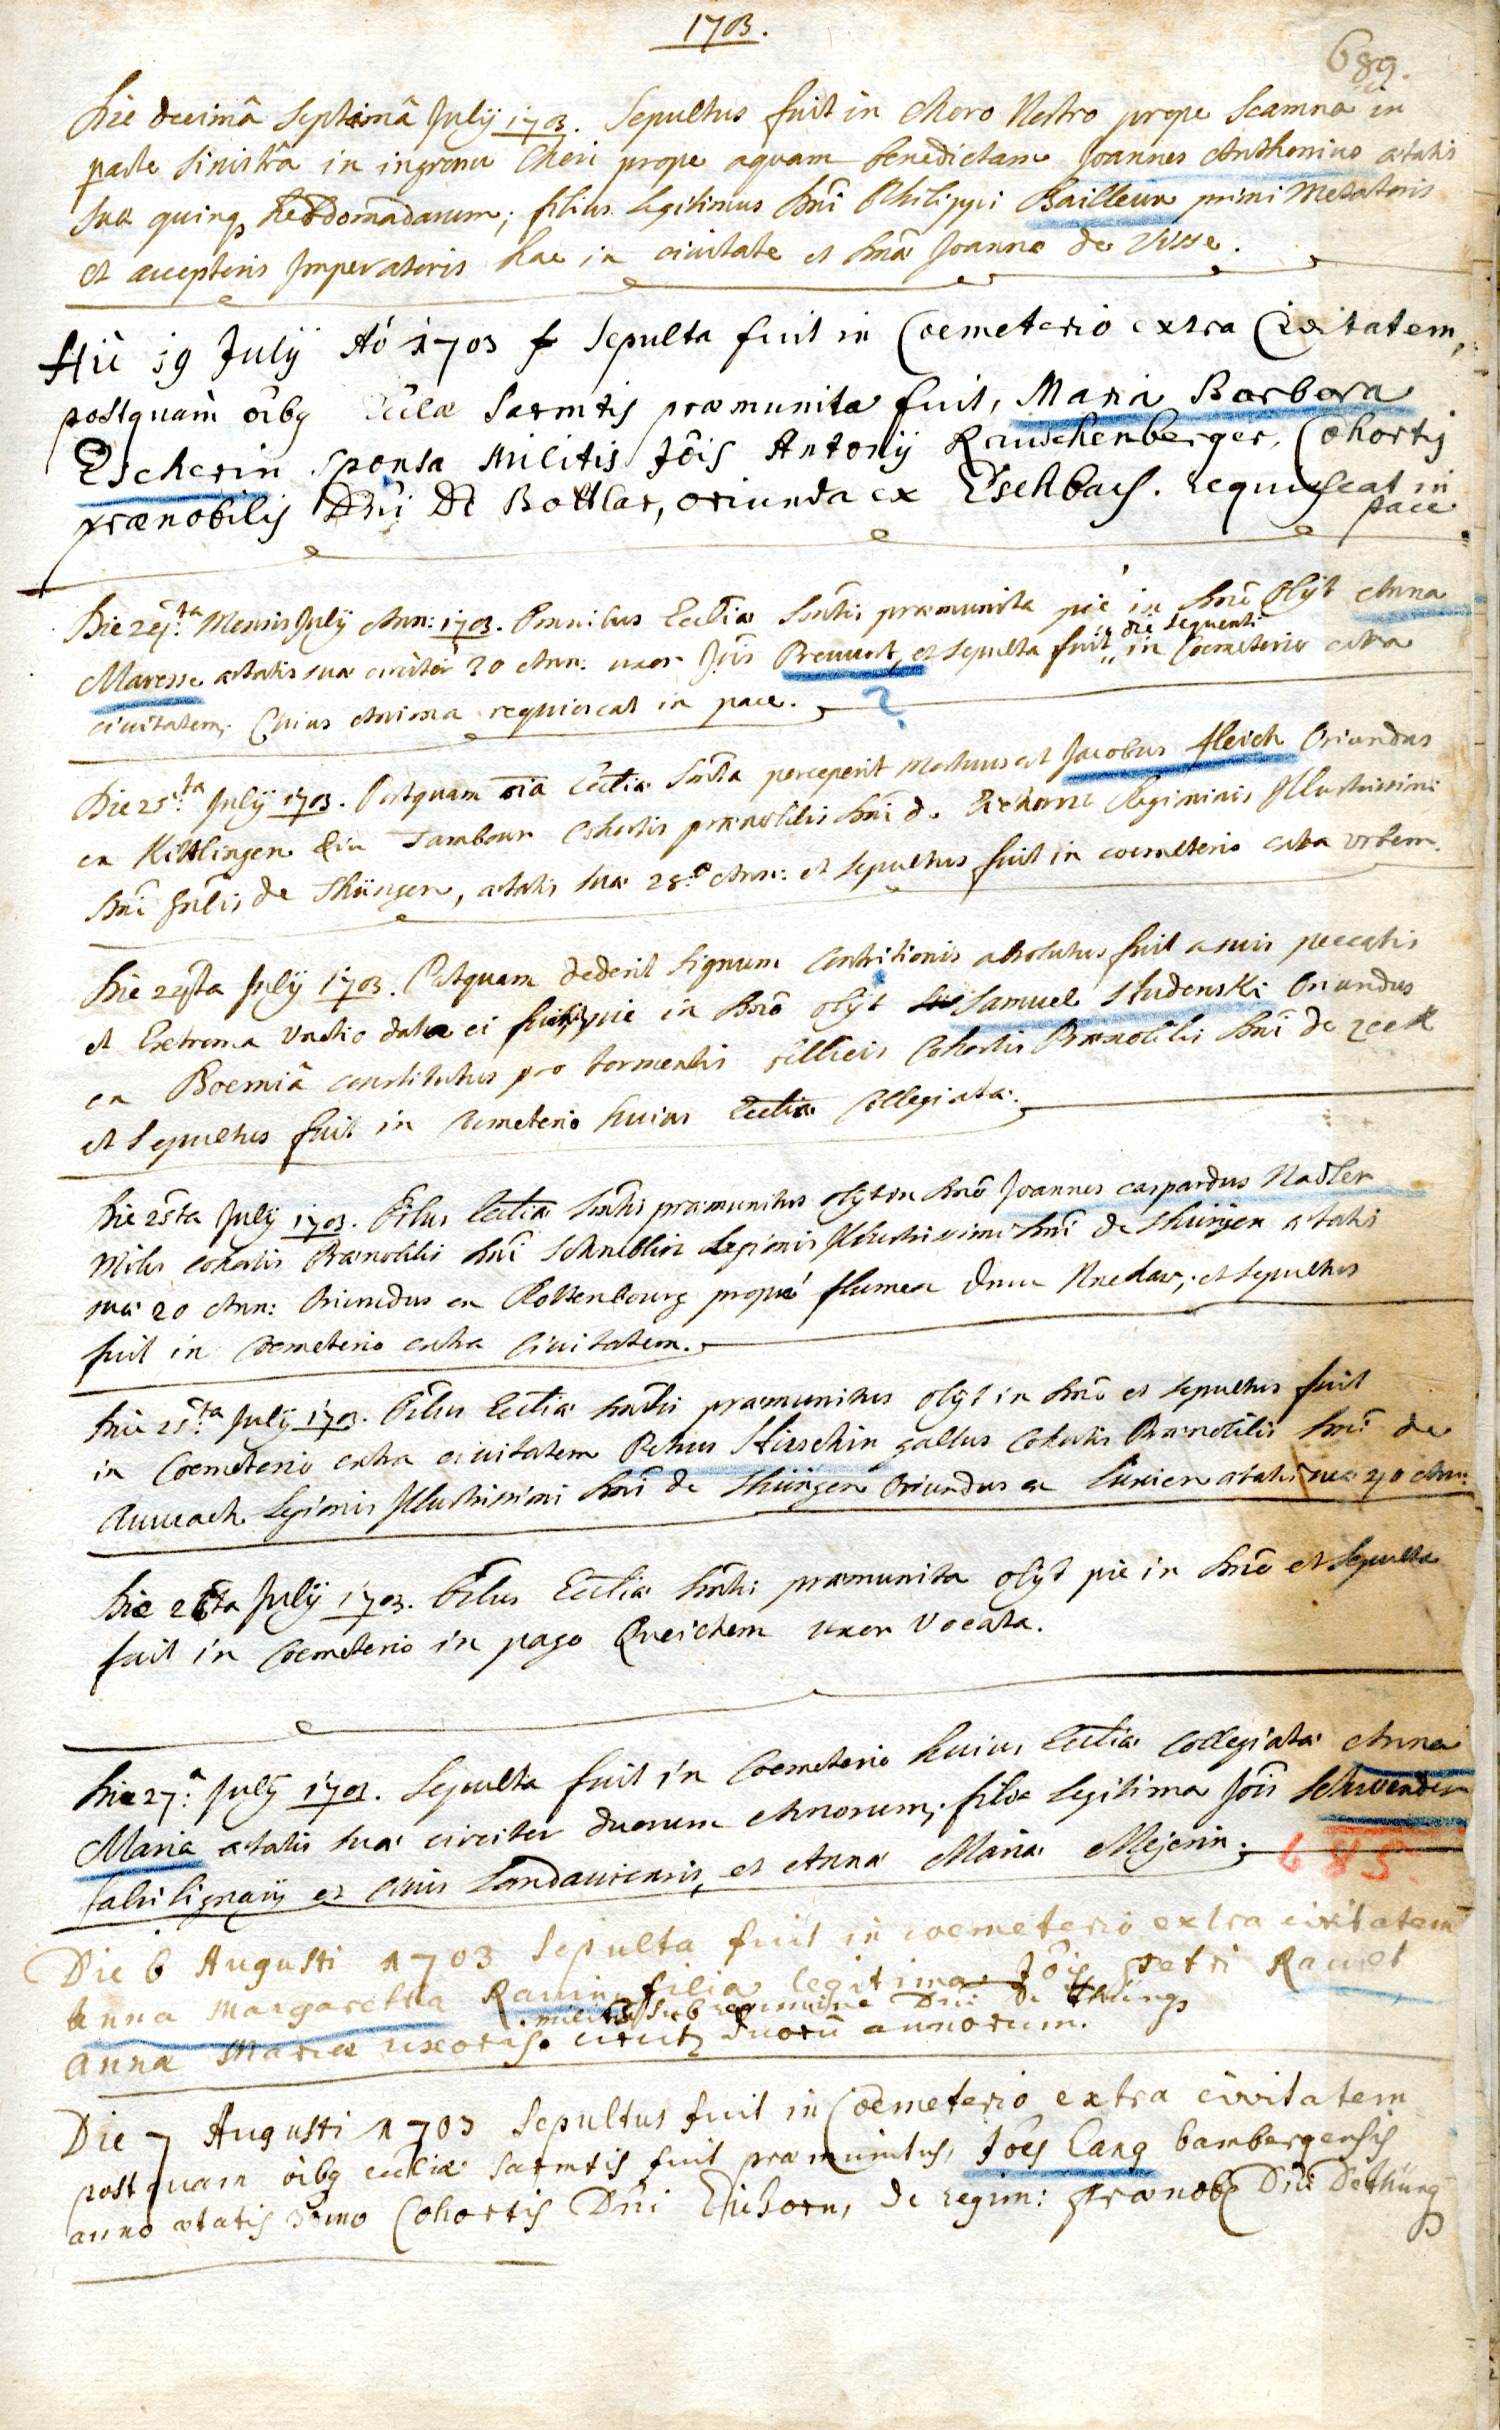 1703.
689.
Die decimâ septimâ July 1703. Sepultus fuit in choro Nostro prope scamna in
parte sinistrâ in ingressu chori prope aquam benedictam Joannes Anthonius ætatis
suæ quinq hebdomadarum; filius legitimus Dni Philippi Bailleux primi Metatoris
et acceptoris Imperatoris hac in civitate et Dnæ Joannæ de Visse.
Die 19 July Aō 1703 sepulta fuit in Coemeterio extra Civitatem,
postquam oibg Eccliæ Sacrmtis præmunita fuit, Maria Barbara
Escherin sponsa militis Jôis Antony Rauschenberger, Cohortis
prænobilis Dni De Bottlar, oriunda ex Eschbach. requiescat in
pace
Die 24ta Mensis July Ann: 1703. Omnibus Eccliæ Sacrtis præmunita pie in Dno obyt Anna
Maresse ætatis suæ circiter 30 Ann: uxor Jois Prevvost, et sepulta fuit die sequenti in Coemeterio extra
civitatem; Cuius Anima requiescat in pace.
?
Die 25ta July 1703. Postquam oia Eccliæ Sacrta perceperit mortuus est Jacobus fleich Oriundus
ex Kittlingen Ein Tambour Cohortis prænobilis Dni d. Eichorne Regiminis Illustrissimi
Dni Gnlis de Thüngen, ætatis suæ 28 Ann: et sepultus fuit in coemeterio extra urbem.
Die 24ta July 1703. Postquam dederit signum Contritionis absolutus fuit a suis peccatis
et Extrema Unctio data ei fuit, pie in Dno obyt Samuel Studenski Oriundus
ex Boemiâ constitutus pro tormentis bellicis Cohortis Prænobilis Dni de zeek
et sepultus fuit in Coemeterio huius Eccliæ Collegiatæ.
Die 25ta July 1703. Oibus Eccliæ Sacrtis præmunitus obyt in Dno Joannes caspardus Nadler
Miles cohortis Prænobilis Dni Schneblin Legionis Illustrissimi Dni de Thüngen ætatis
suæ 20 Ann: Oriundus ex Rottenbourg propè flumen Dnm Neckar; et sepultus
fuit in coemeterio extra Civitatem.
Die 25ta July 1703. Oibus Eccliæ Sacrtis præmunitus obyt in Dno et sepultus fuit
in Coemeterio extra civitatem Petrus Hirschin gallus Cohortis Prænobilis Dni de
Auwach Legionis Illustrissimi Dni de Thüngen Oriundus ex Lurien ætatis suæ 40 Ann:
Die 26ta July 1703. Oibus Eccliæ Sacrtis præmunita obyt pie in Dno et sepulta
fuit in Coemeterio in pago Queichem uxor Vocata.
Die 27a July 1703. Sepulta fuit in Coemeterio huius Eccliæ Collegiatæ Anna
Maria ætatis suæ circiter duorum Annorum; filia legitima Jois Schwender
fabri lignarij et Civis Landaviensis, et Annæ Mariæ Mejerin.
685
Die 6 Augusti 1703 sepulta fuit in coemeterio extra civitatem
Anna Margaretha Rauin filia legitima Jôis Petri Rauel
militis sub regimine Dni de Thüng
Annæ Mariæ uxoris. circitr duorû annorum.
Die 7 Augusti 1703 sepultus fuit in Coemeterio extra civitatem
postquam oibg eccliæ sacrmtis fuit præmunitus, Jôes Lang bambergensis
anno ætatis Cohortis Dni Eichorn, de regim: Prænob: Dni De Thüng